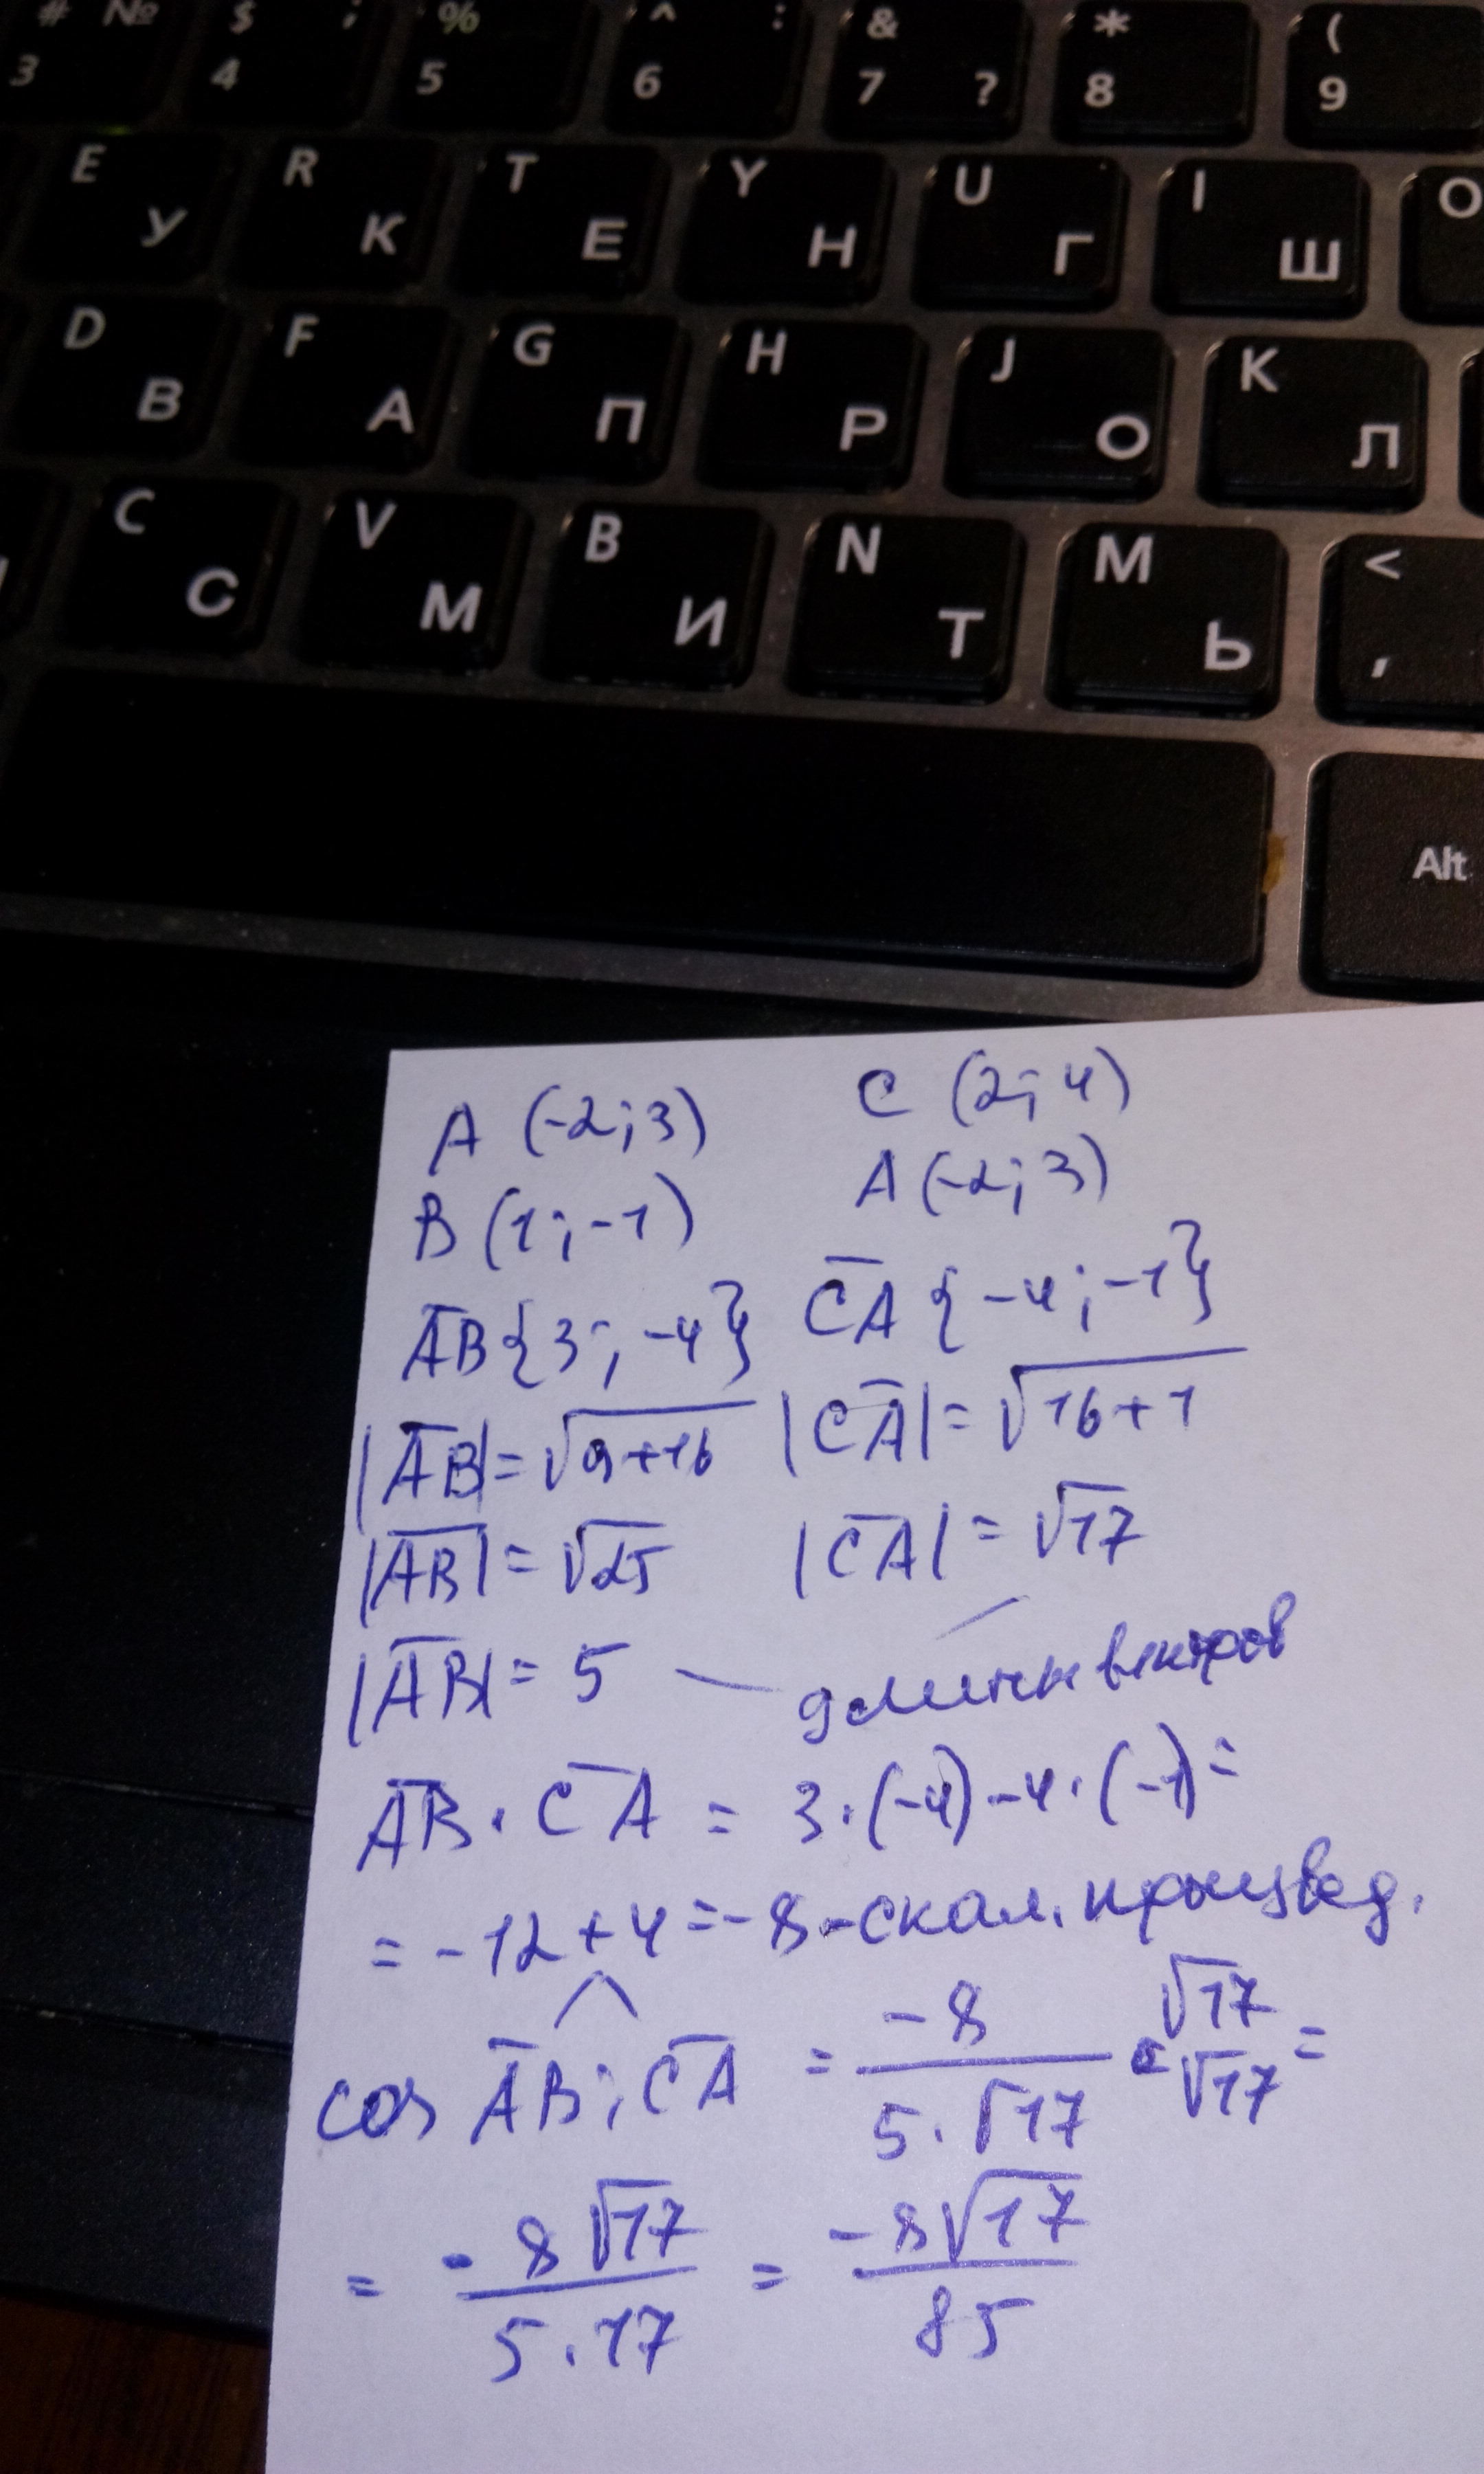 # № $ ; % ^ : & * (
3 4 5 6 7 ? 8 9
E R T Y U I O
У К Е Н Г Ш
D F G H J K
В А П Р О Л
C V B N M <
С М И Т Ь ,
Alt
A (-2; 3) C (2; 4)
B (1; -1) A (-2; 3)
AB {3; -4} CA {-4; -1}
|AB| = √9+16 |CA| = √16+1
|AB| = √25 |CA| = √17
|AB| = 5 — длины векторов
AB · CA = 3·(-4)-4·(-1) =
= -12+4 = -8 - скал. произвед.
cos AB; CA = -8/5·√17 · √17/√17 =
= -8√17/5·17 = -8√17/85